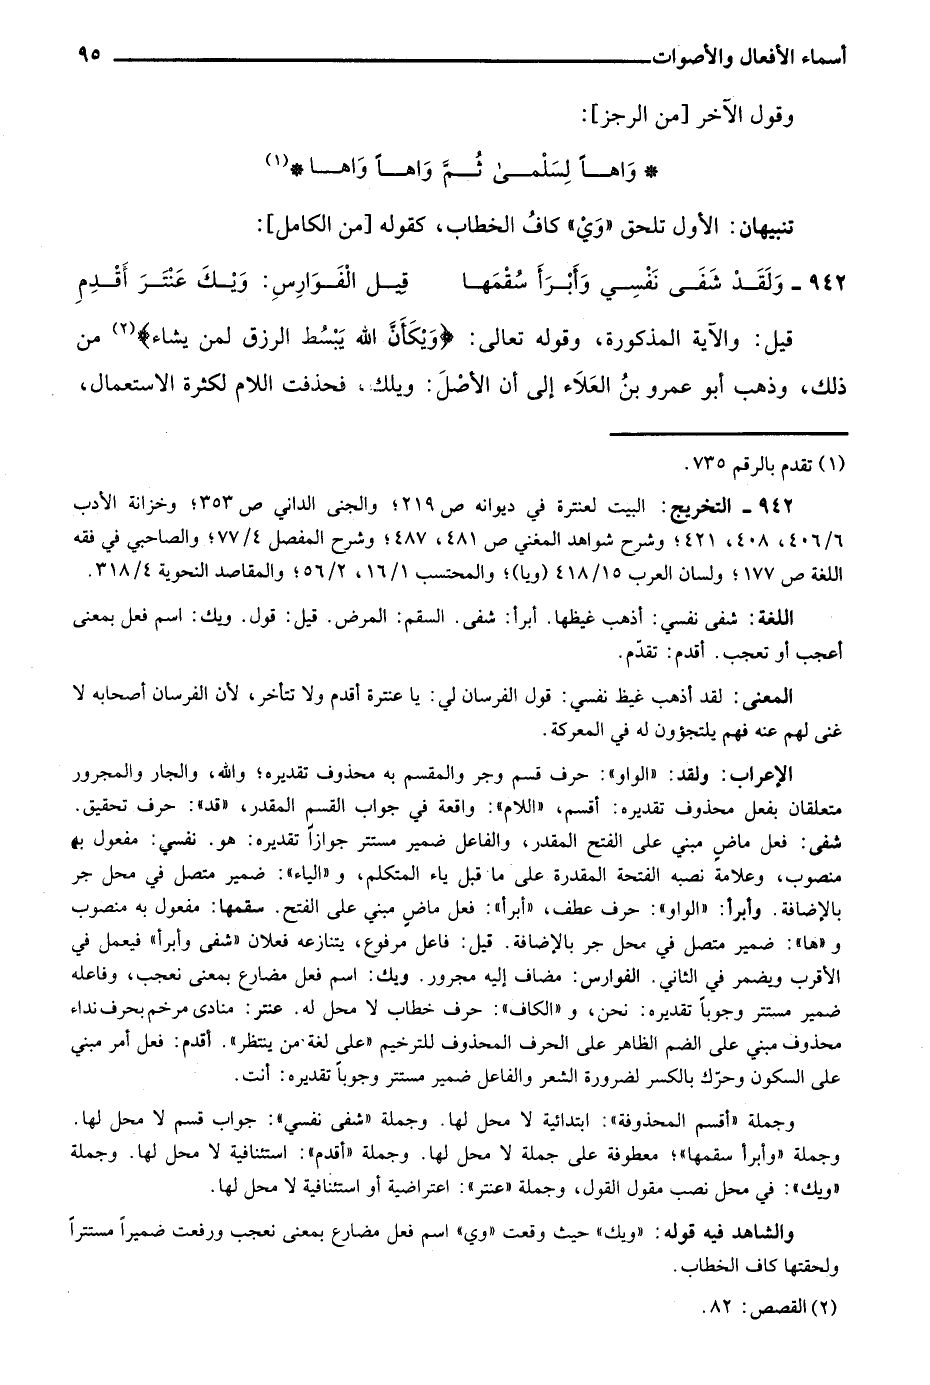 أسماء الأفعال والأصوات ٩٥
وقول الآخر [من الرجز]:
* وَاهــاً لِسَلْمــىٰ ثُــمَّ وَاهــاً وَاهــا *(١)
تنبيهان: الأول تلحق «وَيْ» كافُ الخطاب، كقوله [من الكامل]:
٩٤٢ ـ وَلَقَــدْ شَفَــى نَفْسِــي وَأَبْــرَأَ سُقْمَهــا قِيــل الْفَــوَارِسِ: وَيْــكَ عَنْتَــرَ أَقْــدِمِ
قيل: والآية المذكورة، وقوله تعالى: ﴿وَيْكَأَنَّ الله يَبْسُط الرزق لمن يشاء﴾(٢) من
ذلك، وذهب أبو عمرو بنُ العَلَاء إلى أن الأصْلَ: ويلك، فحذفت اللام لكثرة الاستعمال،
(١) تقدم بالرقم ٧٣٥.
٩٤٢ ـ التخريج: البيت لعنترة في ديوانه ص ٢١٩؛ والجنى الداني ص ٣٥٣؛ وخزانة الأدب
٤٠٦/٦، ٤٠٨، ٤٢١؛ وشرح شواهد المغني ص ٤٨١، ٤٨٧؛ وشرح المفصل ٧٧/٤؛ والصاحبي في فقه
اللغة ص ١٧٧؛ ولسان العرب ٤١٨/١٥ (ويا)؛ والمحتسب ١٦/١، ٥٦/٢؛ والمقاصد النحوية ٣١٨/٤.
اللغة: شفى نفسي: أذهب غيظها. أبرأ: شفى. السقم: المرض. قيل: قول. ويك: اسم فعل بمعنى
أعجب أو تعجب. أقدم: تقدّم.
المعنى: لقد أذهب غيظ نفسي: قول الفرسان لي: يا عنترة أقدم ولا تتأخر، لأن الفرسان أصحابه لا
غنى لهم عنه فهم يلتجؤون له في المعركة.
الإعراب: ولقد: «الواو»: حرف قسم وجر والمقسم به محذوف تقديره؛ والله، والجار والمجرور
متعلقان بفعل محذوف تقديره: أقسم، «اللام»: واقعة في جواب القسم المقدر، «قد»: حرف تحقيق.
شفى: فعل ماضٍ مبني على الفتح المقدر، والفاعل ضمير مستتر جوازاً تقديره: هو. نفسي: مفعول به
منصوب، وعلامة نصبه الفتحة المقدرة على ما قبل ياء المتكلم، و «الياء»: ضمير متصل في محل جر
بالإضافة. وأبرأ: «الواو»: حرف عطف، «أبرأ»: فعل ماضٍ مبني على الفتح. سقمها: مفعول به منصوب
و «ها»: ضمير متصل في محل جر بالإضافة. قيل: فاعل مرفوع، يتنازعه فعلان «شفى وأبرأ» فيعمل في
الأقرب ويضمر في الثاني. الفوارس: مضاف إليه مجرور. ويك: اسم فعل مضارع بمعنى نعجب، وفاعله
ضمير مستتر وجوباً تقديره: نحن، و «الكاف»: حرف خطاب لا محل له. عنتر: منادى مرخم بحرف نداء
محذوف مبني على الضم الظاهر على الحرف المحذوف للترخيم «على لغة من ينتظر». أقدم: فعل أمر مبني
على السكون وحرّك بالكسر لضرورة الشعر والفاعل ضمير مستتر وجوباً تقديره: أنت.
وجملة «أقسم المحذوفة»: ابتدائية لا محل لها. وجملة «شفى نفسي»: جواب قسم لا محل لها.
وجملة «وأبرأ سقمها»؛ معطوفة على جملة لا محل لها. وجملة «أقدم»: استئنافية لا محل لها. وجملة
«ويك»: في محل نصب مقول القول، وجملة «عنتر»: اعتراضية أو استئنافية لا محل لها.
والشاهد فيه قوله: «ويك» حيث وقعت «وي» اسم فعل مضارع بمعنى نعجب ورفعت ضميراً مستتراً
ولحقتها كاف الخطاب.
(٢) القصص: ٨٢.